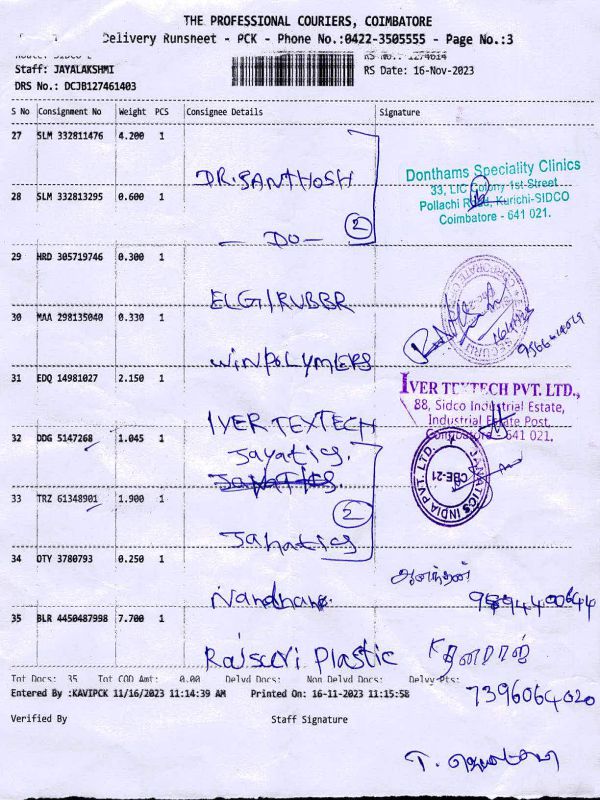 THE PROFESSIONAL COURIERS, COIMBATORE
Delivery Runsheet - PCK - Phone No.:0422-3505555 - Page No.:3
Staff: JAYALAKSHMI
RS Date: 16-Nov-2023
DRS No.: DCJB127461403
S No Consignment No Weight PCS Consignee Details Signature
27 SLM 332811476 4.200 1
DR.SANTHOSH
Donthams Speciality Clinics
33, LIC Colony 1st Street
28 SLM 332813295 0.600 1
Pollachi Road, Kurichi-SIDCO
Coimbatore - 641 021.
— DO — 2
29 HRD 305719746 0.300 1
ELGI RUBBR
30 MAA 298135040 0.330 1
WINPOLYMERS
31 EDQ 14981027 2.150 1
IVER TEXTECH PVT. LTD.,
88, Sidco Industrial Estate,
Industrial Estate Post,
Coimbatore - 641 021.
IVER TEXTECH
32 DDG 5147268 1.045 1
Jayatics.
JANATICS INDIA PVT. LTD. CBE-21
33 TRZ 61348901 1.900 1
2
Janatics
34 OTY 3780793 0.250 1
ஆனந்தன்
Nandhana.
35 BLR 4450487998 7.700 1
Raisuri Plastic
Tot Docs: 35 Tot COD Amt: 0.00 Delvd Docs: Non Delvd Docs: Delvy Pts:
7396064020
Entered By :KAVIPCK 11/16/2023 11:14:39 AM Printed On: 16-11-2023 11:15:58
Verified By Staff Signature